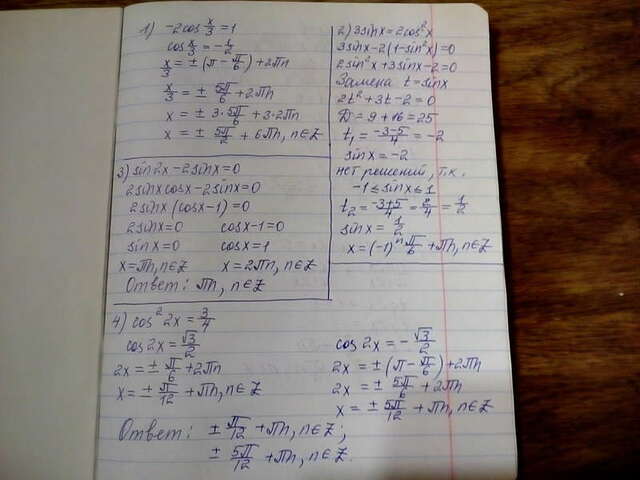 1) -2cos x/3 = 1
cos x/3 = -1/2
x/3 = ± (π - π/6) + 2πn
x/3 = ± 5π/6 + 2πn
x = ± 3·5π/6 + 3·2πn
x = ± 5π/2 + 6πn, n∈Z
2) 3sinx = 2cos²x
3sinx - 2(1-sin²x) = 0
2sin²x + 3sinx - 2 = 0
Замена t = sinx
2t² + 3t - 2 = 0
D = 9 + 16 = 25
t₁ = -3-5/4 = -2
sinx = -2
нет решений, т.к.
-1 ≤ sinx ≤ 1
t₂ = -3+5/4 = 2/4 = 1/2
sinx = 1/2
x = (-1)ⁿ π/6 + πn, n∈Z
3) sin2x - 2sinx = 0
2sinxcosx - 2sinx = 0
2sinx (cosx - 1) = 0
2sinx = 0 cosx - 1 = 0
sinx = 0 cosx = 1
x = πn, n∈Z x = 2πn, n∈Z
Ответ: πn, n∈Z
4) cos² 2x = 3/4
cos 2x = √3/2
2x = ± π/6 + 2πn
x = ± π/12 + πn, n∈Z
cos 2x = -√3/2
2x = ± (π - π/6) + 2πn
2x = ± 5π/6 + 2πn
x = ± 5π/12 + πn, n∈Z
Ответ: ± π/12 + πn, n∈Z;
± 5π/12 + πn, n∈Z.